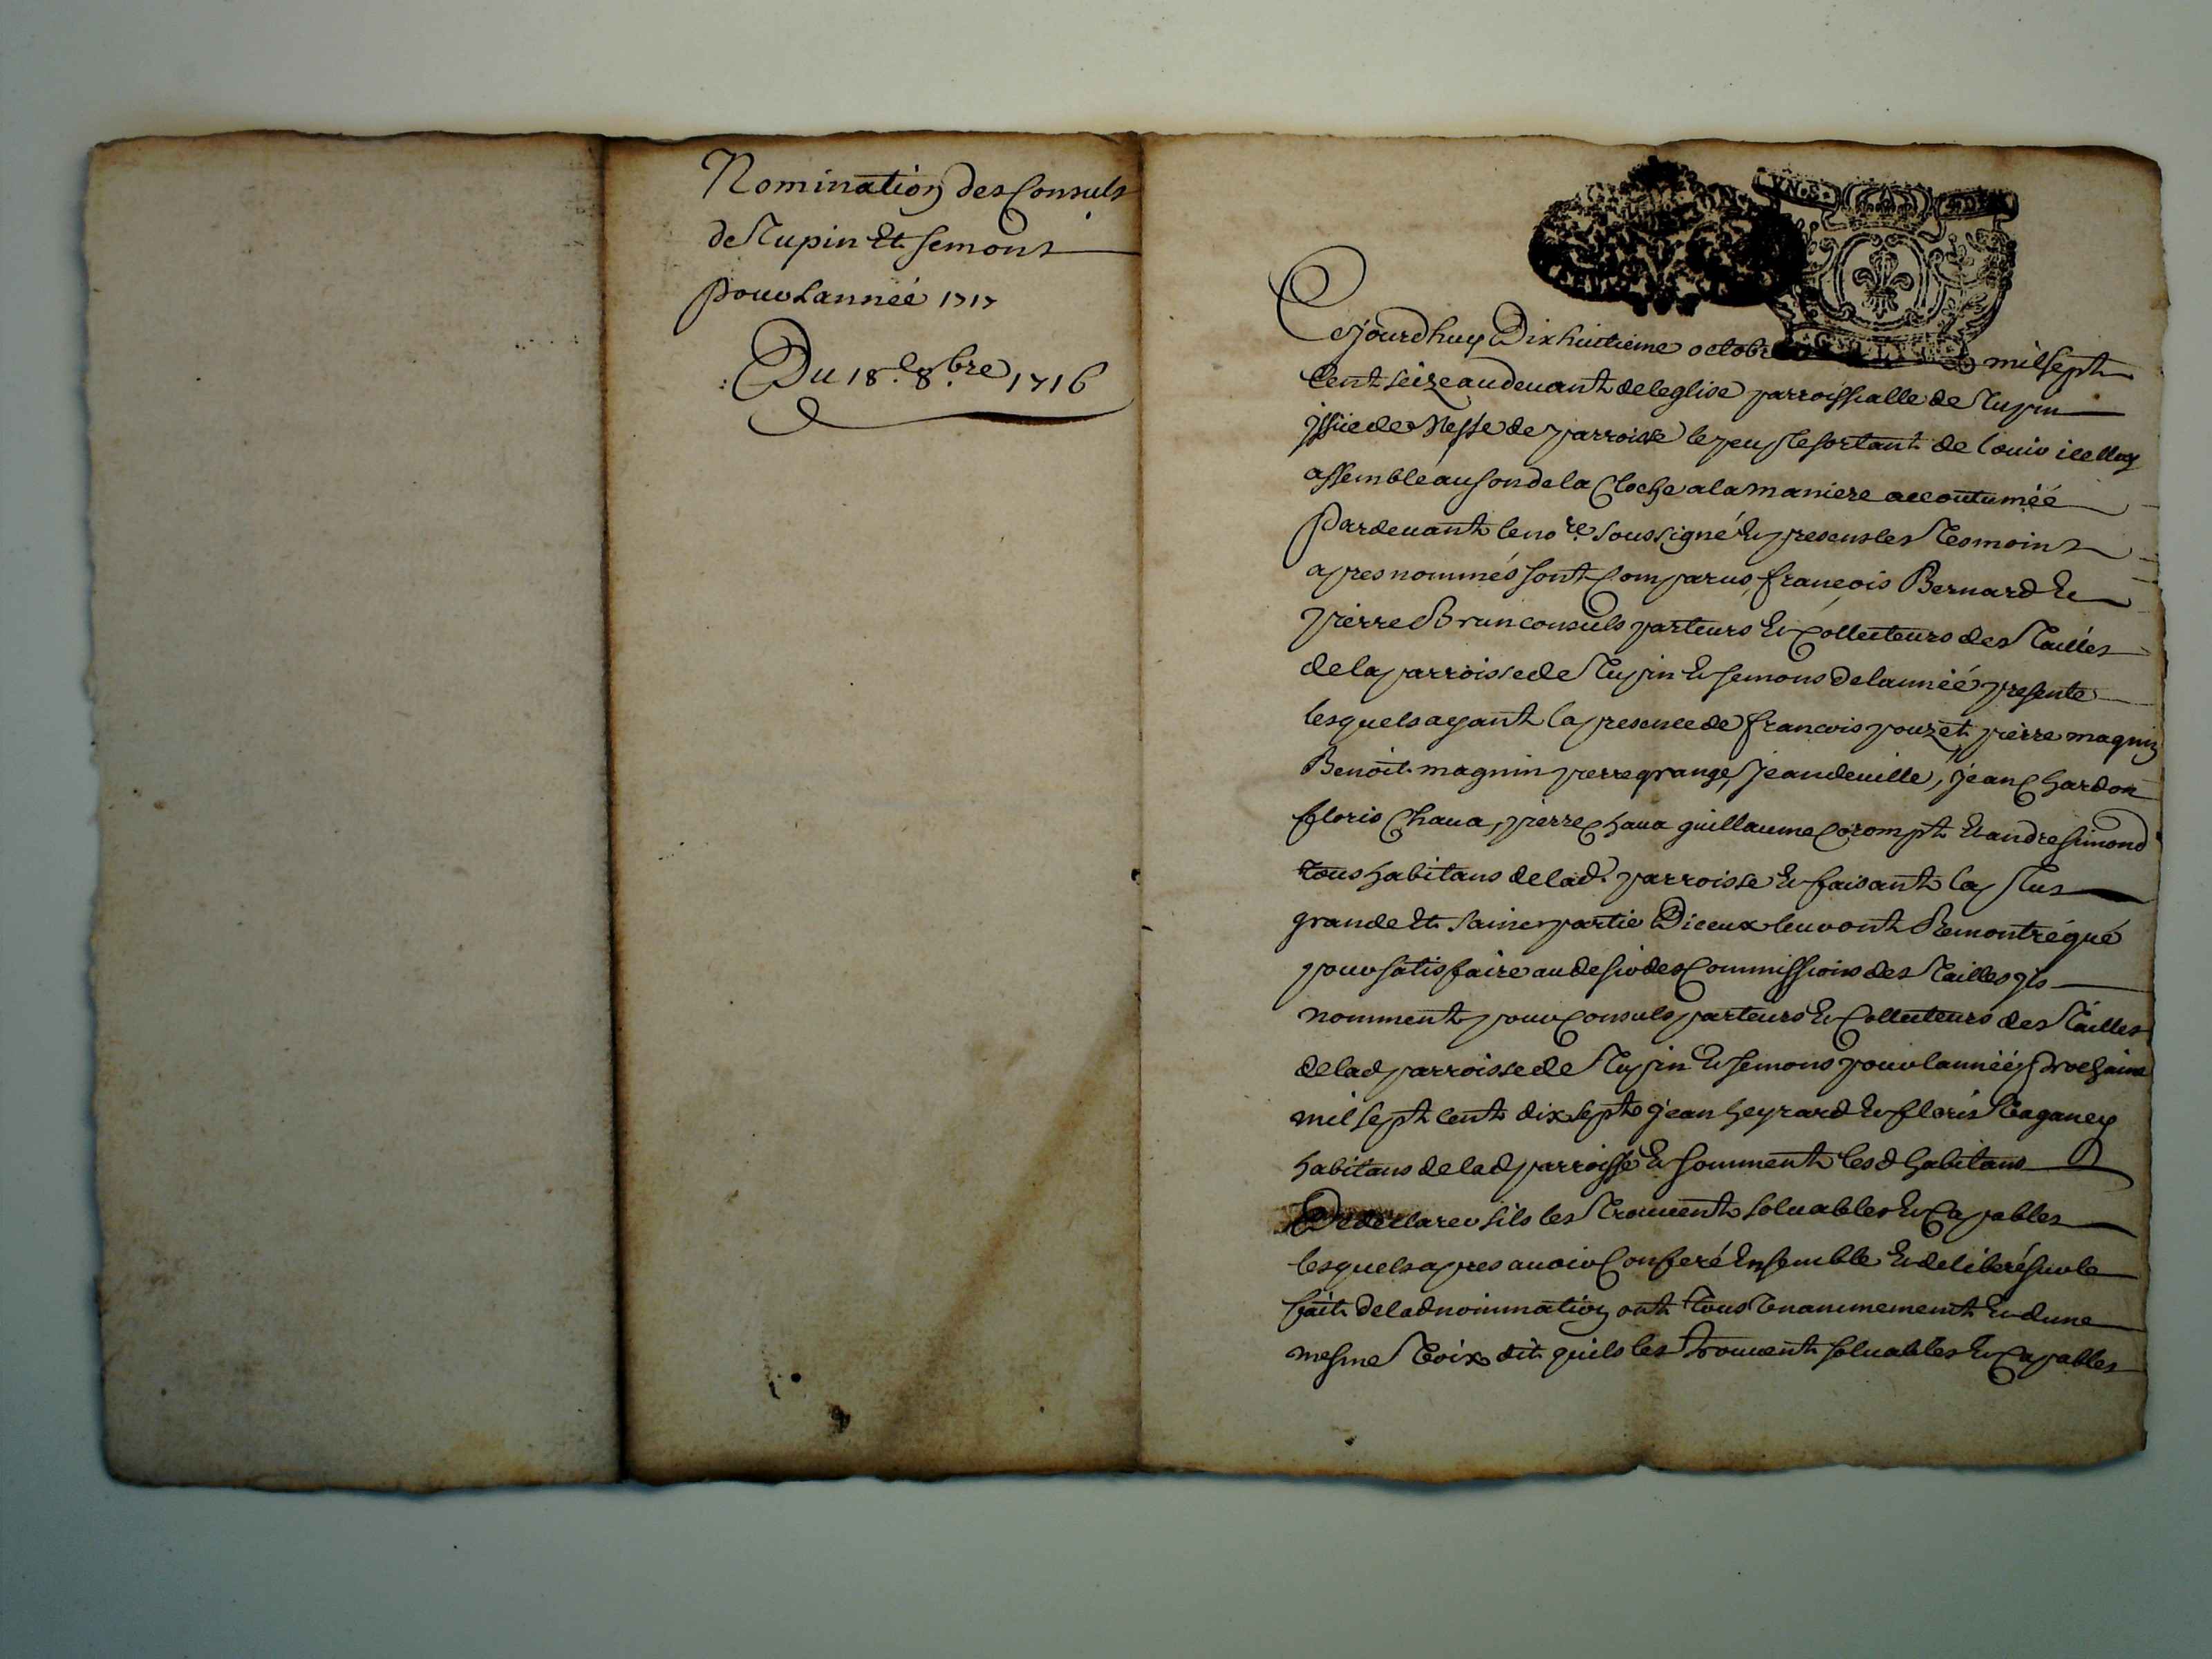 Nomination des Consuls
de Tupin Et Semons
pour Lannée 1717
Du 18.e 8.bre 1716
VN. S.
Cejourdhuy Dixhuitieme octobre mil sept
Cent seize audevant de leglise parroissialle de Tupin
Issüe de Messe de parroisse le peuple sortant de louir icelle
assemble au son de la Cloche a la maniere accoutumée
Pardevant le no.re soussigné Et presens les Tesmoins
apres nommés sont Comparus, françois Bernard Et
pierre Brun consuls parteurs Et Collecteurs des Tailles
de la parroisse de Tupin Et semons de lannéé presente
lesquels ayant la presence de francois pouzet pierre magnin
Benoit magnin pierre grange, Jean deuille, Jean Chardon
floris Chaua, pierre Chaua guillaume Corompt Et andre simond
tous habitans de lad. parroisse Et faisant la plus
grande Et saine partie Diceux leur ont Remontré que
pour satisfaire au desir des Commissions des Tailles Ils
nomment pour Consuls parteurs Et Collecteurs des Tailles
de lad parroisse de Tupin Et semons pour lannéé prochaine
mil sept cent dix sept Jean heyrard Et floris Taganey
habitans de lad parroisse Et somment lesd habitans
De declarer sils les Trouuent soluables Et Capables
lesquels apres auoir Conferé Ensemble Et deliberé sur le
fait de lad nomination ont Tous Vnanimement Et dune
mesme Voix dit quils les trouuent soluables Et Capables